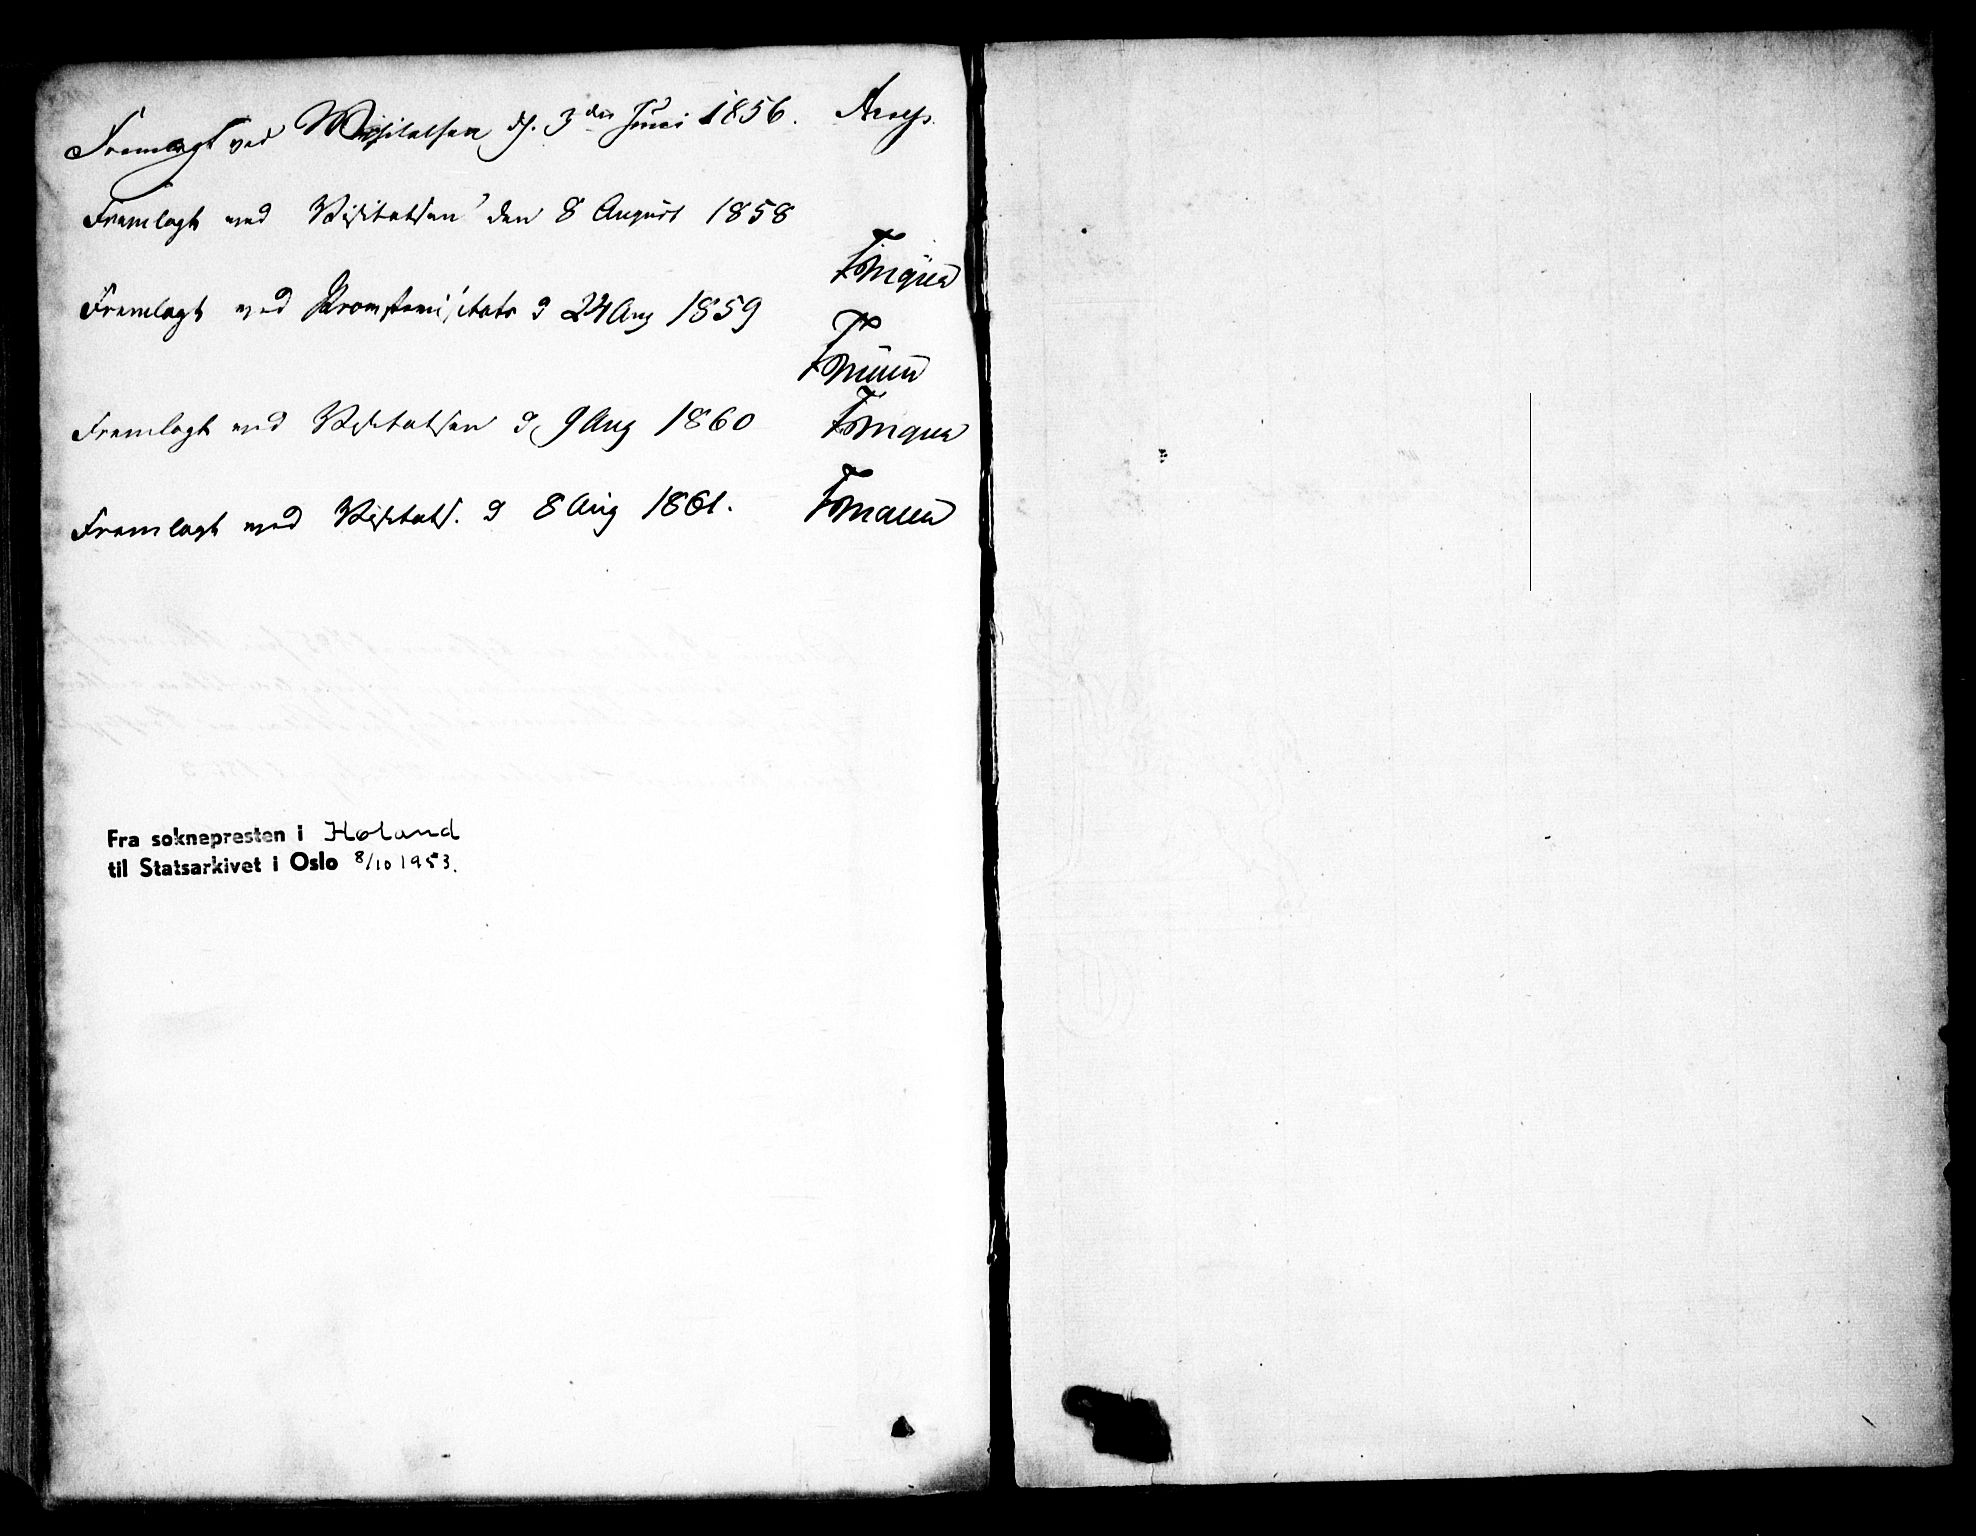 Fremlagt ved Visitatsen d. 3den Juni 1856.
Fremlagt ved Visitatsen den 8 August 1858
Fremlagt ved Provstevisitats d 24 Aug 1859
Fremlagt ved Visitatsen d 9 Aug 1860
Fremlagt ved Visitats. d 8 Aug 1861.
Fra soknepresten i Høland
til Statsarkivet i Oslo 8/10 1953.